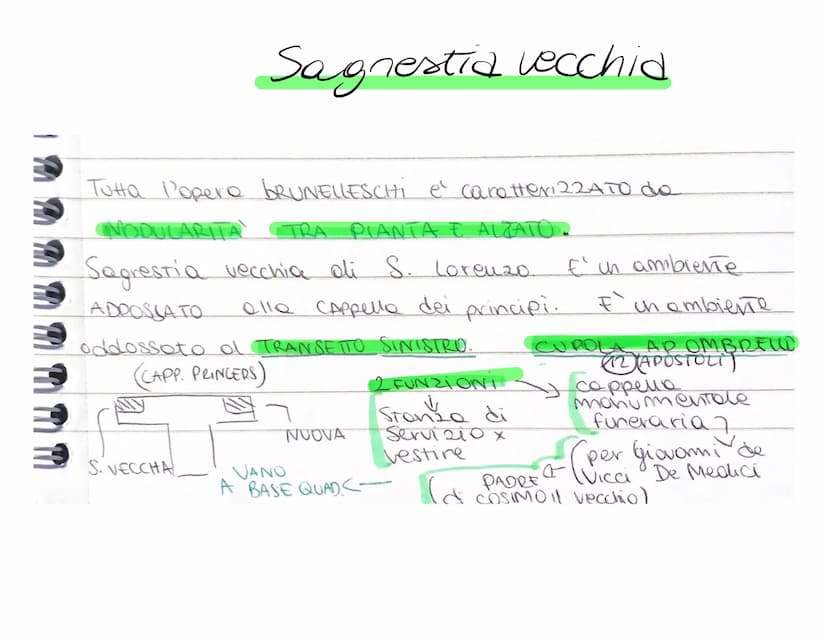 Sagrestia vecchia
Tutta l'opera BRUNELLESCHI e' caratteriZZATO da
MODULARITA' TRA PIANTA E ALZATO.
Sagrestia vecchia di S. Lorenzo. E' un ambiente
ADDOSSATO alla CAPPella dei principi. E' un ambiente
addossato al TRANSETTO SINISTRO. CUPOLA AD OMBRELLO
(12)(APOSTOLI)
(CAPP. PRINCEPS)
2 FUNZIONI
cappella
monumentale
funeraria
Stanza di
servizio x
vestire
NUOVA
S. VECCHIA
VANO
A BASE QUAD.
(per Giovanni de
Vicci De Medici
PADRE
(di COSIMO il vecchio)